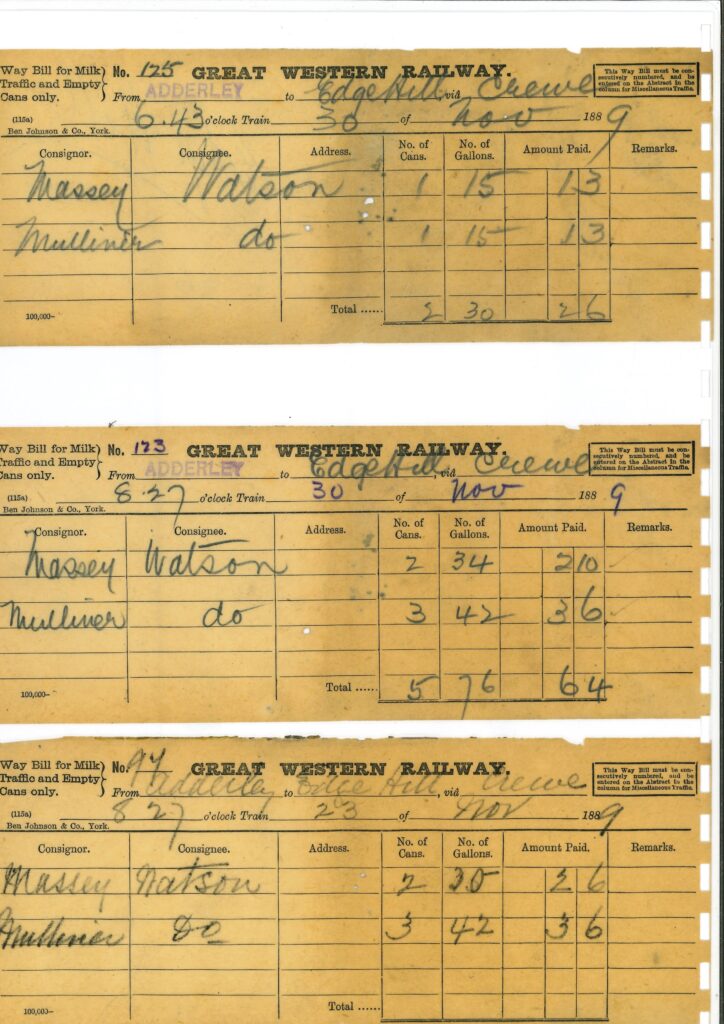 Way Bill for Milk Traffic and Empty Cans only. No. 125 GREAT WESTERN RAILWAY. This Way Bill must be consecutively numbered, and be entered on the Abstract in the column for Miscellaneous Traffic.
From ADDERLEY to Edge Hill, viâ Crewe
(115a) 6.43 o'clock Train 30 of Nov 1889
Ben Johnson & Co., York.
Consignor. Consignee. Address. No. of Cans. No. of Gallons. Amount Paid. Remarks.
Massey Watson 1 15 1 3
Mulliner do 1 15 1 3
100,000— Total ...... 2 30 2 6
Way Bill for Milk Traffic and Empty Cans only. No. 123 GREAT WESTERN RAILWAY. This Way Bill must be consecutively numbered, and be entered on the Abstract in the column for Miscellaneous Traffic.
From ADDERLEY to Edge Hill, viâ Crewe
(115a) 8.27 o'clock Train 30 of Nov 1889
Ben Johnson & Co., York.
Consignor. Consignee. Address. No. of Cans. No. of Gallons. Amount Paid. Remarks.
Massey Watson 2 34 2 10
Mulliner do 3 42 3 6
100,000— Total ...... 5 76 6 4
Way Bill for Milk Traffic and Empty Cans only. No. 97 GREAT WESTERN RAILWAY. This Way Bill must be consecutively numbered, and be entered on the Abstract in the column for Miscellaneous Traffic.
From Adderley to Edge Hill, viâ Crewe
(115a) 8.27 o'clock Train 23 of Nov 1889
Ben Johnson & Co., York.
Consignor. Consignee. Address. No. of Cans. No. of Gallons. Amount Paid. Remarks.
Massey Watson 2 30 2 6
Mulliner Do 3 42 3 6
100,000— Total ......